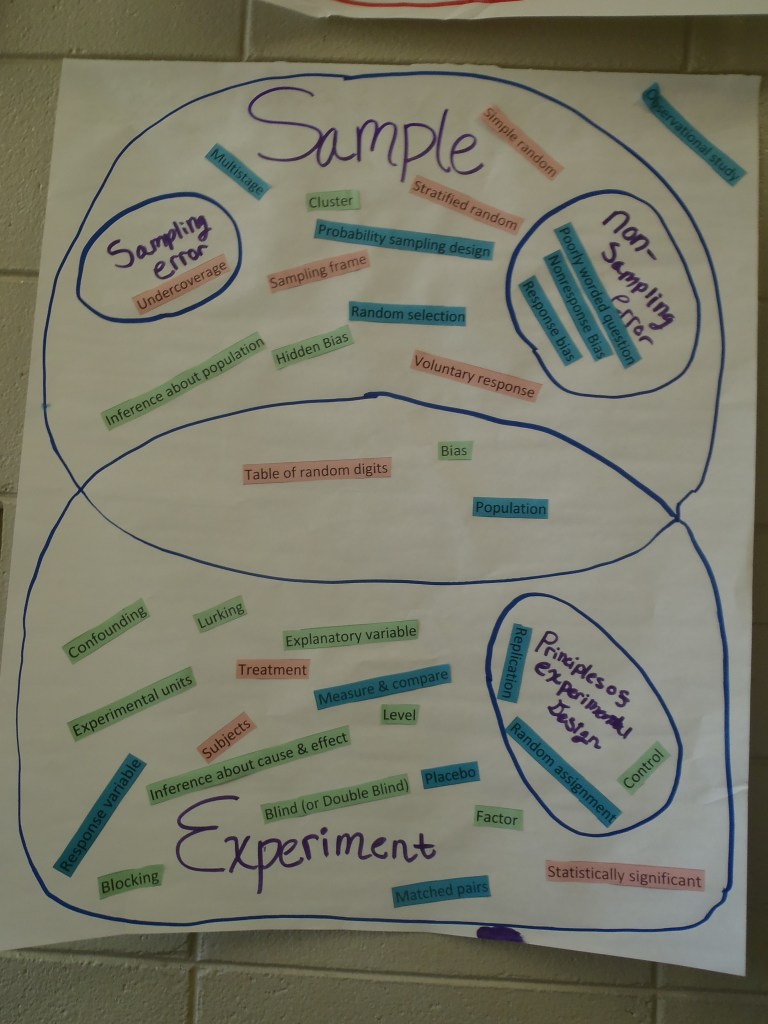 Sample
Simple random
Observational study
Multistage
Cluster
Stratified random
Probability sampling design
Sampling
error
Undercoverage
Sampling frame
Non-
Sampling
error
Poorly worded question
Nonresponse Bias
Response bias
Random selection
Hidden Bias
Inference about population
Voluntary response
Table of random digits
Bias
Population
Confounding
Lurking
Explanatory variable
Treatment
Measure & compare
Experimental units
Level
Subjects
Inference about cause & effect
Response variable
Blind (or Double Blind)
Placebo
Factor
Replication
Principles of
experimental
Design
Random assignment
Control
Experiment
Blocking
Matched pairs
Statistically significant